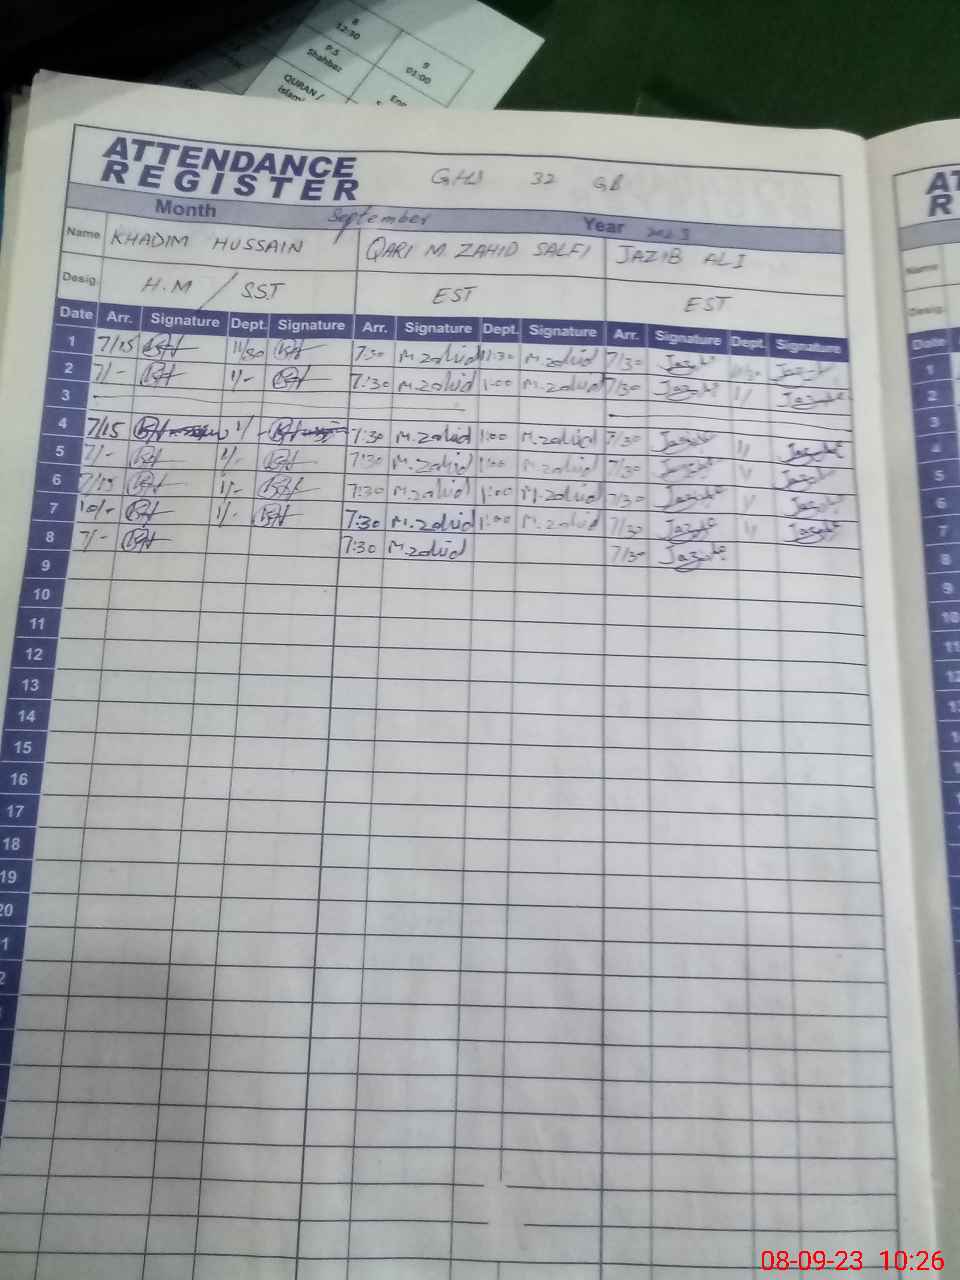 8 9
12:30 01:00
P.S
Shahbaz
QURAN /
ATTENDANCE
REGISTER GHS 32 GB
Month September Year 2023
Name KHADIM HUSSAIN QARI M ZAHID SALFI JAZIB ALI
Desig. H.M / SST EST EST
Date Arr. Signature Dept. Signature Arr. Signature Dept. Signature Arr. Signature Dept. Signature
1 7/15 11/30 7:30 M.zahid 11:30 M.zahid 7/30 Jazib Jazib
2 7/- 1/- 7:30 M.zahid 1:00 M.zahid 7/30 Jazib 1/ Jazib
3
4 7/15 1/- 7:30 M.zahid 1:00 M.zahid 7/30 Jazib 1/ Jazib
5 7/- 1/- 7:30 M.zahid 1:00 M.zahid 7/30 Jazib 1/ Jazib
6 7/15 1/- 7:30 M.zahid 1:00 M.zahid 7/30 Jazib 1/ Jazib
7 10/- 1/- 7:30 M.zahid 1:00 M.zahid 7/30 Jazib 1/ Jazib
8 7/- 7:30 M.zahid 7/30 Jazib
9
10
11
12
13
14
15
16
17
18
19
20
Date
1
2
3
4
5
6
7
8
9
10
11
08-09-23 10:26